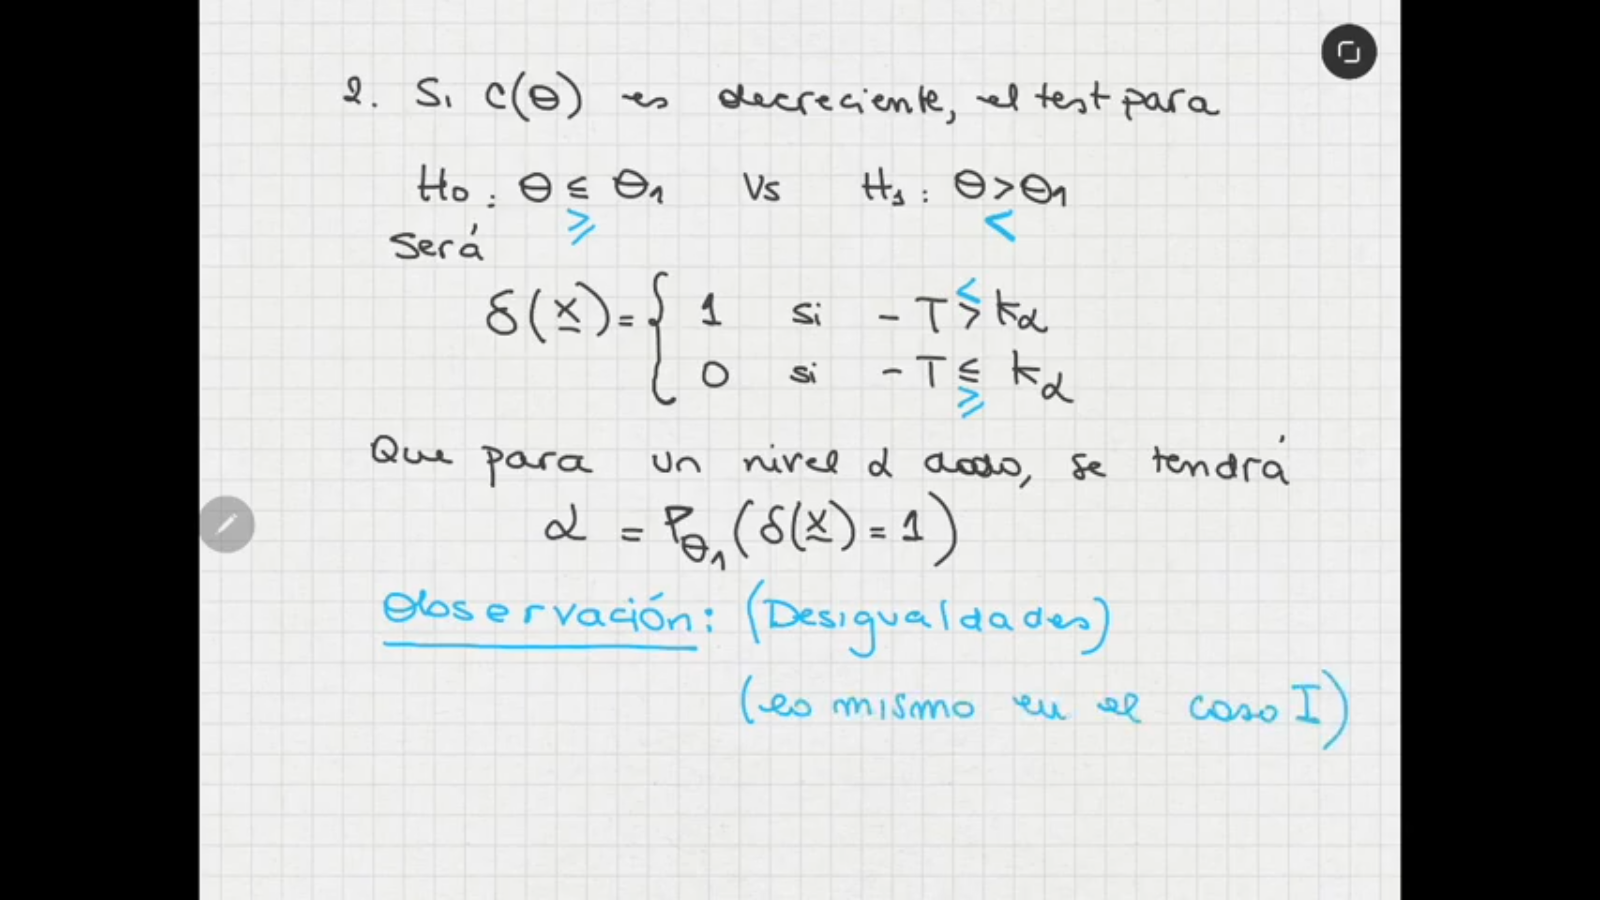 2. Si C(θ) es decreciente, el test para
H₀: θ ≤ θ₁ Vs H₁: θ > θ₁
≥ <
Será
<
δ(x̲) = { 1 si - T > kα
0 si - T ≤ kα
≥
Que para un nivel α dado, se tendrá
α = P_θ₁ (δ(x̲) = 1)
Observación: (Desigualdades)
(es mismo en el caso I)